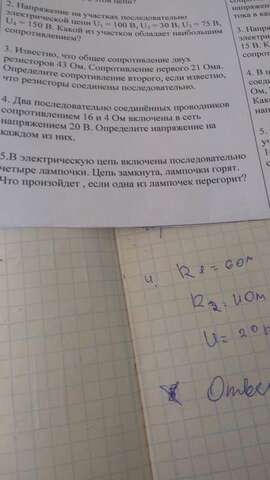 2. Напряжение на участках последовательно
электрической цепи U₁ = 100 В, U₂ = 30 В, U₃ = 75 В,
U₄ = 150 В. Какой из участков обладает наибольшим
сопротивлением?
3. Известно, что общее сопротивление двух
резисторов 43 Ом. Сопротивление первого 21 Ома.
Определите сопротивление второго, если известно,
что резисторы соединены последовательно.
4. Два последовательно соединённых проводников
сопротивлением 16 и 4 Ом включены в сеть
напряжением 20 В. Определите напряжение на
каждом из них.
5.В электрическую цепь включены последовательно
четыре лампочки. Цепь замкнута, лампочки горят.
Что произойдет , если одна из лампочек перегорит?
3. Напр
4. В
5.
4. R1=6ОМ
R2=4Ом
U=20
Отве